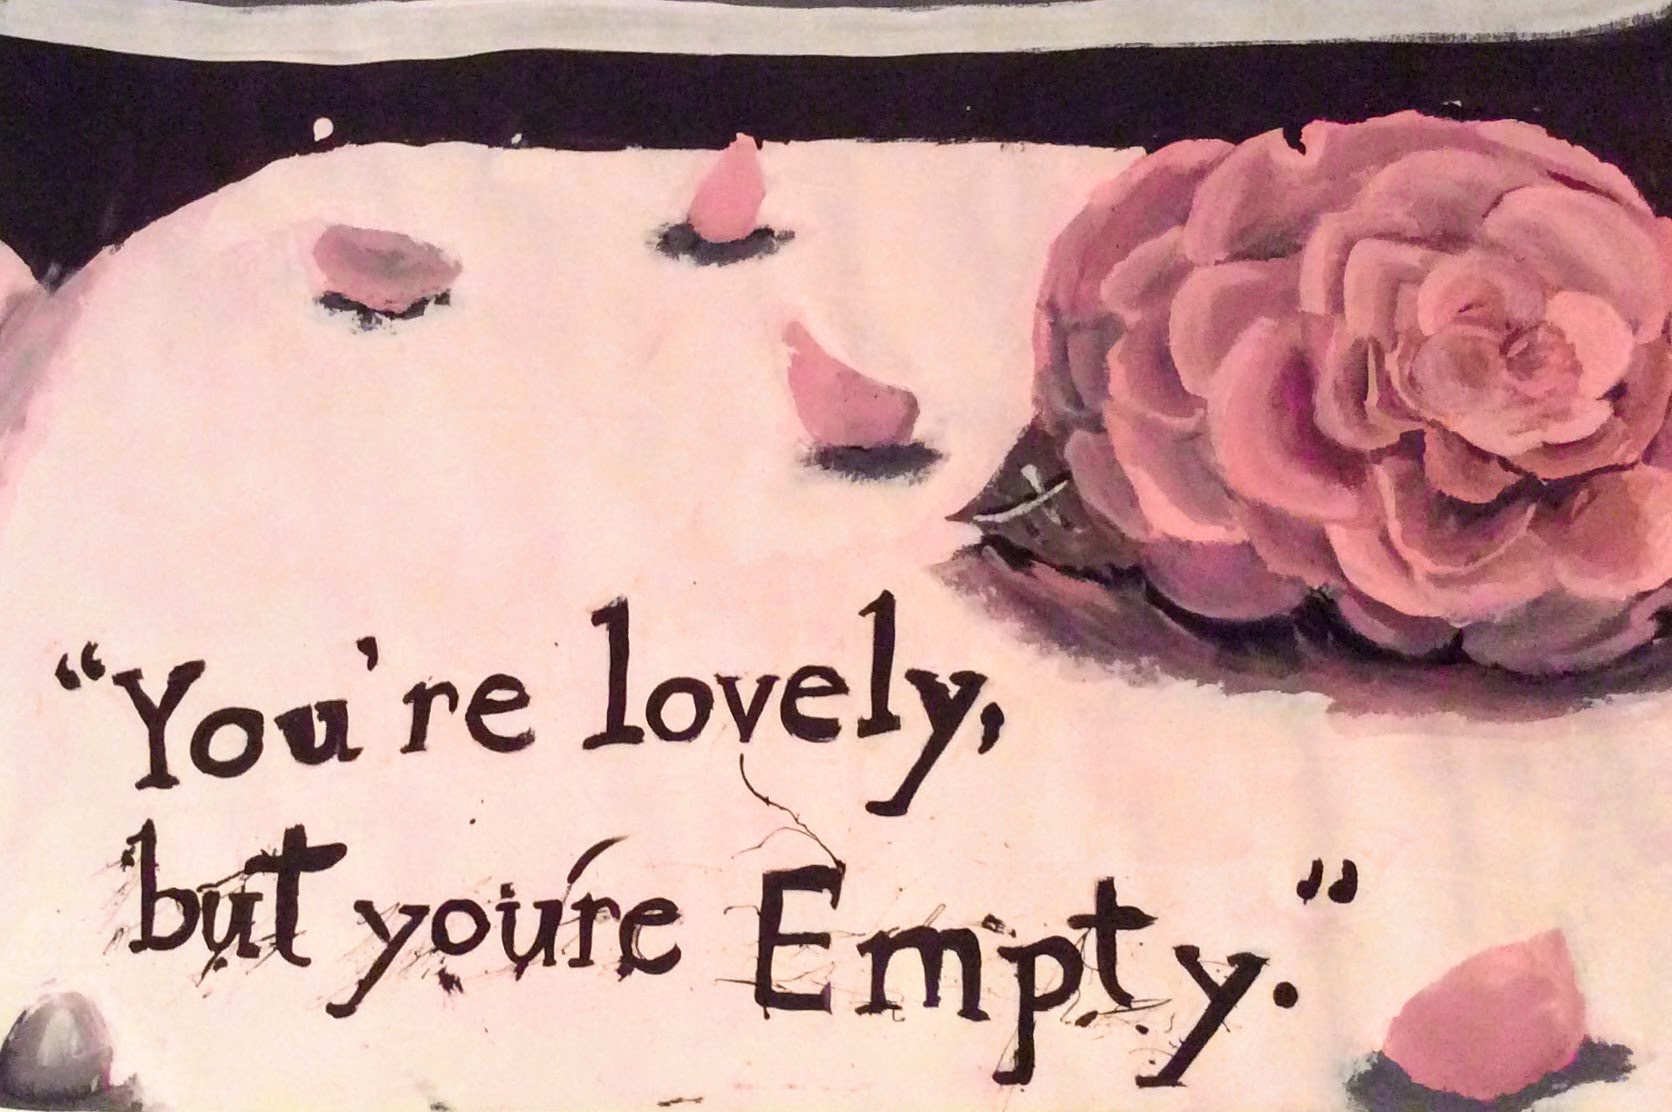 “You're lovely,
but you're Empty.”